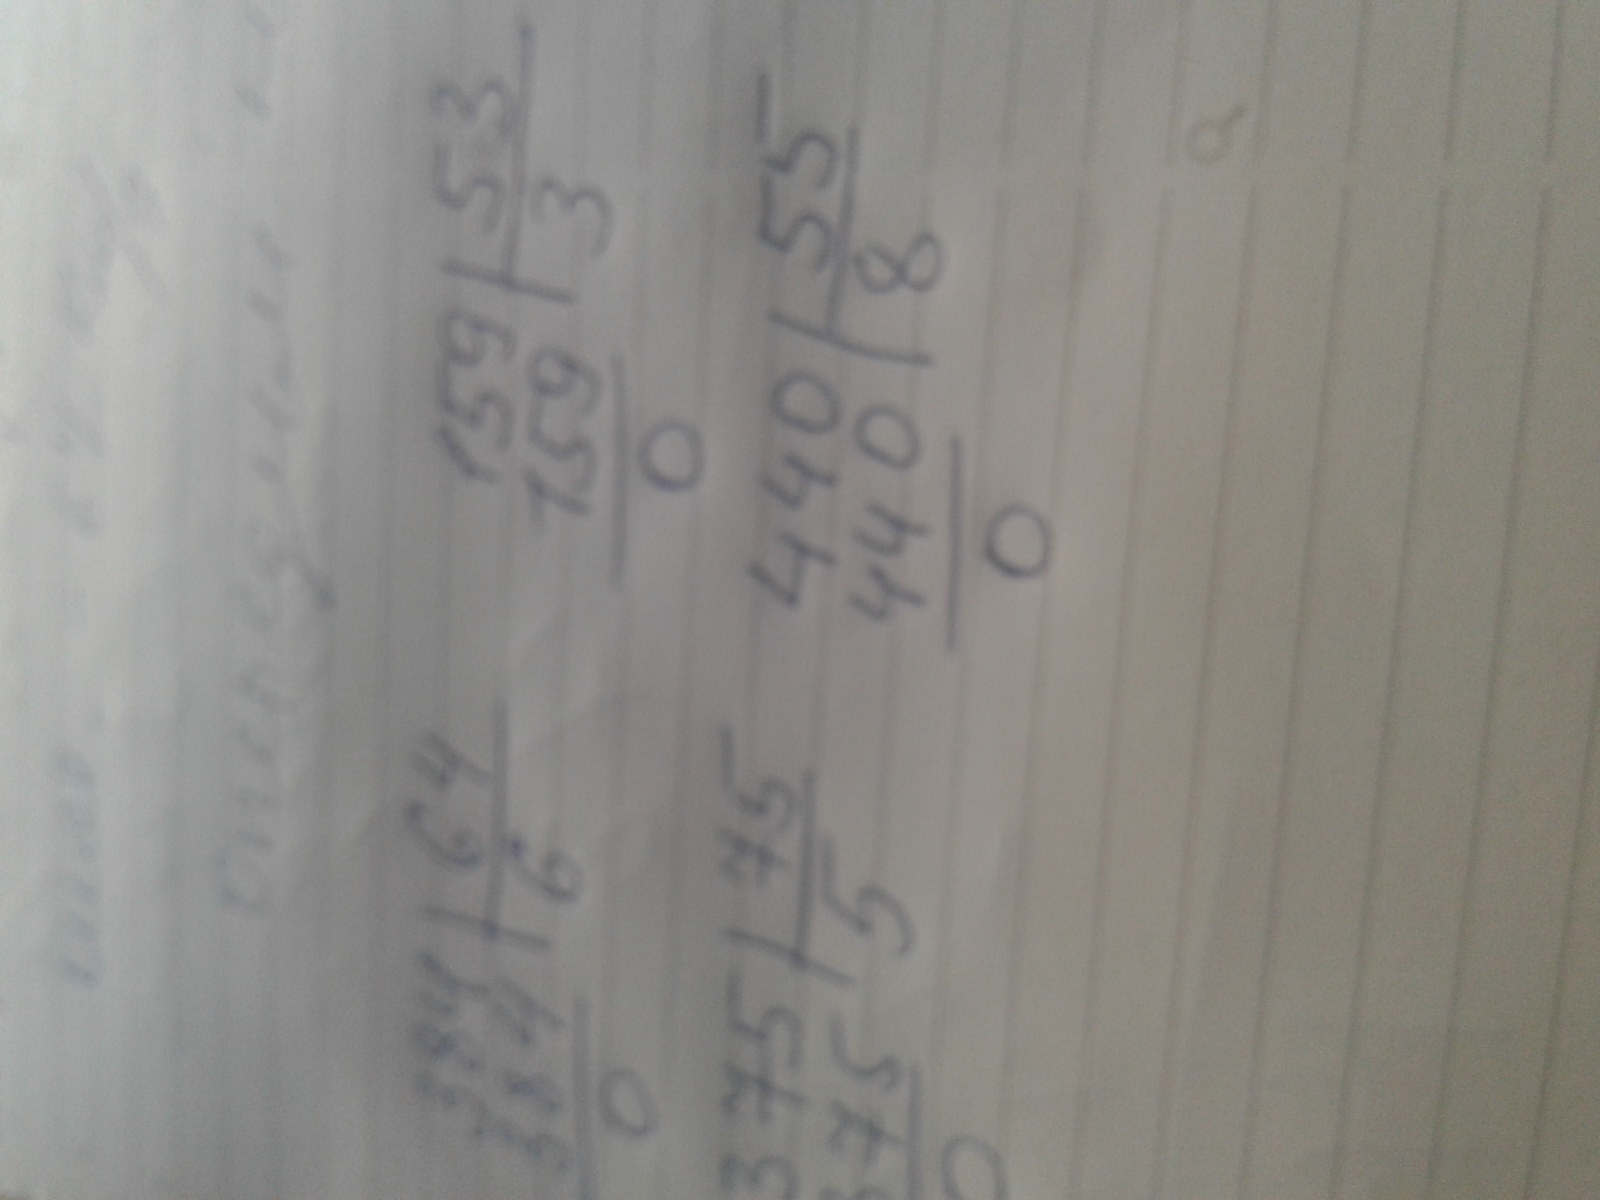 384 | 64 159 | 53
384 | 6 159 | 3
0 0
375 | 75 440 | 55
375 | 5 440 | 8
0 0